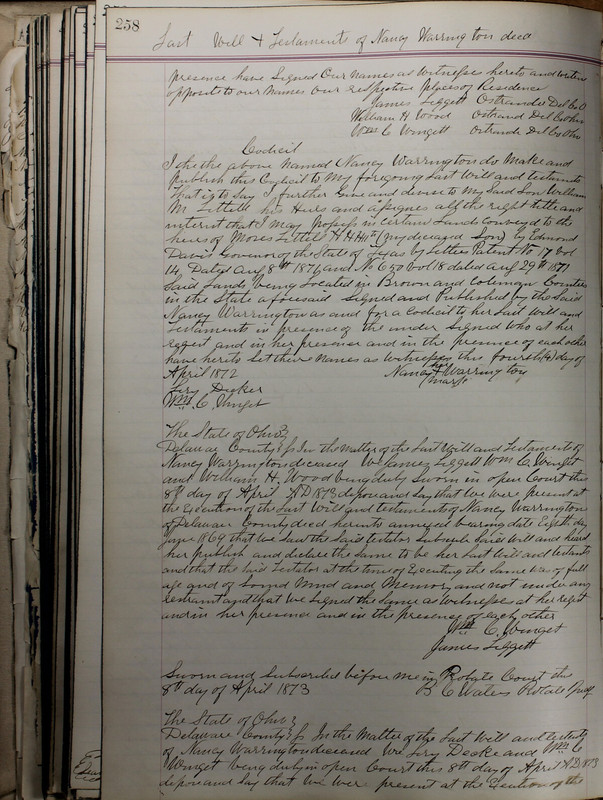 258
Last Will & Testaments of Nancy Warrington decd
presence have Signed Our names as witnesses hereto and written
opposite to our names Our respective places of Residence
James Liggett Ostrander Del Co O
William H Wood Ostrand Del Co Ohio
Wm C Wingett Ostrande Del Co Ohio
Codicil
I the the above named Nancy Warrington do Make and
publish this Codicil to My foregoing Last Will and testaments
That is to Say I further Give and devise to My Said Son William
M. Littell his Heirs and assignes all the right title and
interest that I may possess in certain Lands conveyed to the
heirs of Moses Littell (my deceased Son) by Edmond
Davis Govenor of the State of Texas by Letters Patent No 17 Vol
14, Dated Aug 8th and No 630 Vol 18 dated Aug 29th 1871
Said Lands being Located in Brown and Coleman Counties
in the State aforesaid Signed and Published by the Said
Nancy Warrington as and for a Codicil to her Last Will and
Testaments in presence of the under Signed who at her
request and in her presence and in the presence of each other
have hereto Set their names as witnesses this fourth (4) day of
April 1872 Nancy her X mark Warrington
Decker
Wm. C. Winget
The State of Ohio }
Delaware County } ss In the Matter of the Last Will and Testaments of
Nancy Warrington deceased We James Liggett Wm C. Winget
and William H. Wood being duly Sworn in open Court this
8th day of April AD 1873 depose and Say that we were present at
the Execution of the Last Will and testaments of Nancy Warrington
of Delaware County decd hereunto annexed bearing date Eighth day
June 1869 that we Saw the Said testator Subscribe Said Will and heard
her publish and declare the same to be her Last Will and testaments
and that the Said Testator at the time of Executing the Same was of full
age and of Sound Mind and Memory and not under any
restraint and that we Signed the Same as witnesses at her request
and in her presence and in the presence of each other
Wm C. Winget
James Liggett
Sworn and Subscribed before me in Probate Court this
8th day of April 1873 B C Waters Probate Judge
The State of Ohio }
Delaware County } ss In the Matter of the Last Will and testaments
of Nancy Warrington deceased We and Wm C
Winget being duly in open Court this 8th day of April AD 1873
depose and Say that We were present at the Execution of the